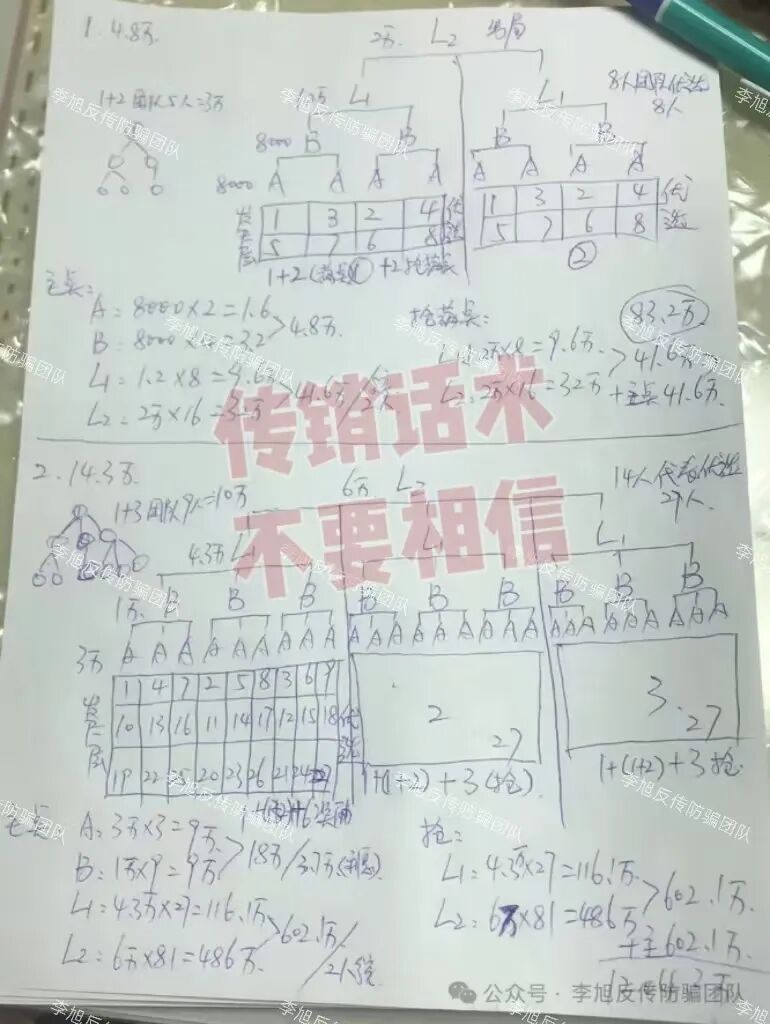 1. 4.8万.
2万. L2 出局
1+2团队5人=3万
1.2万 L1
L1
8人团队优选
8人
8000 B B B B
8000 A A A A A A A A
发展层
1 3 2 4
5 7 6 8
优选
1 3 2 4
5 7 6 8
优选
②
主点:
A: 8000×2=1.6
B: 8000×4=3.2
>4.8万.
L1=1.2×8=9.6万
L2=2万×16=32万
>41.6万/
抢落点:
L1: 1.2万×8=9.6万.
L2: 2万×16=32万
>41.6万
+主点41.6万.
83.2万
传销话术
不要相信
2. 14.3万.
1+3团队9人=10万
6万 L2
14人代表优选
27人.
4.3万 L1
L1
1万. B B B B B B B B B
3万 A A A A A A A A A A A A A A A A A A
发展层
1 4 7 2 5 8 3 6 9
10 13 16 11 14 17 12 15 18
19 22 25 20 23 26 21 24 27
优选
2
27
3.
27
1+(1+2)+3(抢)
1+(1+2)+3抢
主点
A: 3万×3=9万
B: 1万×9=9万
>18万/
L1=4.3万×27=116.1万
L2=6万×81=486万.
>602.1万/
抢:
L1=4.3万×27=116.1万.
L2: 6万×81=486万
>602.1万.
+主602.1万.
公众号 · 李旭反传防骗团队
李旭反传防骗团队